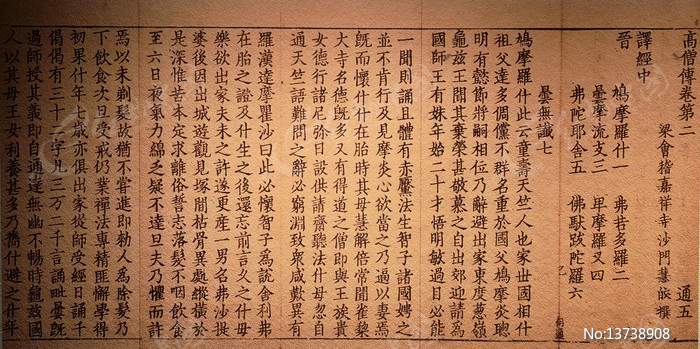 高僧傳卷第二 通五
梁會稽嘉祥寺沙門慧皎撰
譯經中
晉
鳩摩羅什一 弗若多羅二
曇摩流支三 卑摩羅叉四
弗陀耶舍五 佛馱跋陀羅六
曇無讖七
鳩摩羅什此云童壽天竺人也家世國相什
祖父達多倜儻不群名重於國父鳩摩炎聰
明有懿節將嗣相位乃辭避出家東度葱嶺
龜兹王聞其棄榮甚敬慕之自出郊迎請為
國師王有妹年始二十才悟明敏過目必能
一聞則誦且體有赤黶法生智子諸國娉之
並不肯行及見摩炎心欲當之乃逼以妻焉
既而懷什什在胎時其母慧解倍常聞雀梨
大寺名德既多又有得道之僧即與王族貴
女德行諸尼弥日設供請齋聽法什母忽自
通天竺語難問之辭必窮淵致衆咸歎異有
羅漢達摩瞿沙曰此必懷智子為說舍利弗
在胎之證及什生之後還忘前言久之什母
樂欲出家夫未之許遂更產一男名弗沙提
婆後因出城遊觀見塚間枯骨異處縱橫於
是深惟苦本定求離俗誓志落髮不咽飲食
至六日夜氣力綿乏疑不達旦夫乃懼而許
焉以未剃髮故猶不甞進即勑人為除髮乃
下飲食次旦受戒仍業禪法專精匪懈學得
初果什年七歲亦俱出家從師受經日誦千
偈偈有三十二字凡三万二千言誦毗曇既
過師授其義即自通達無幽不暢時龜兹國
人以其母王女利養甚多乃攜什避之什年
No:13738908